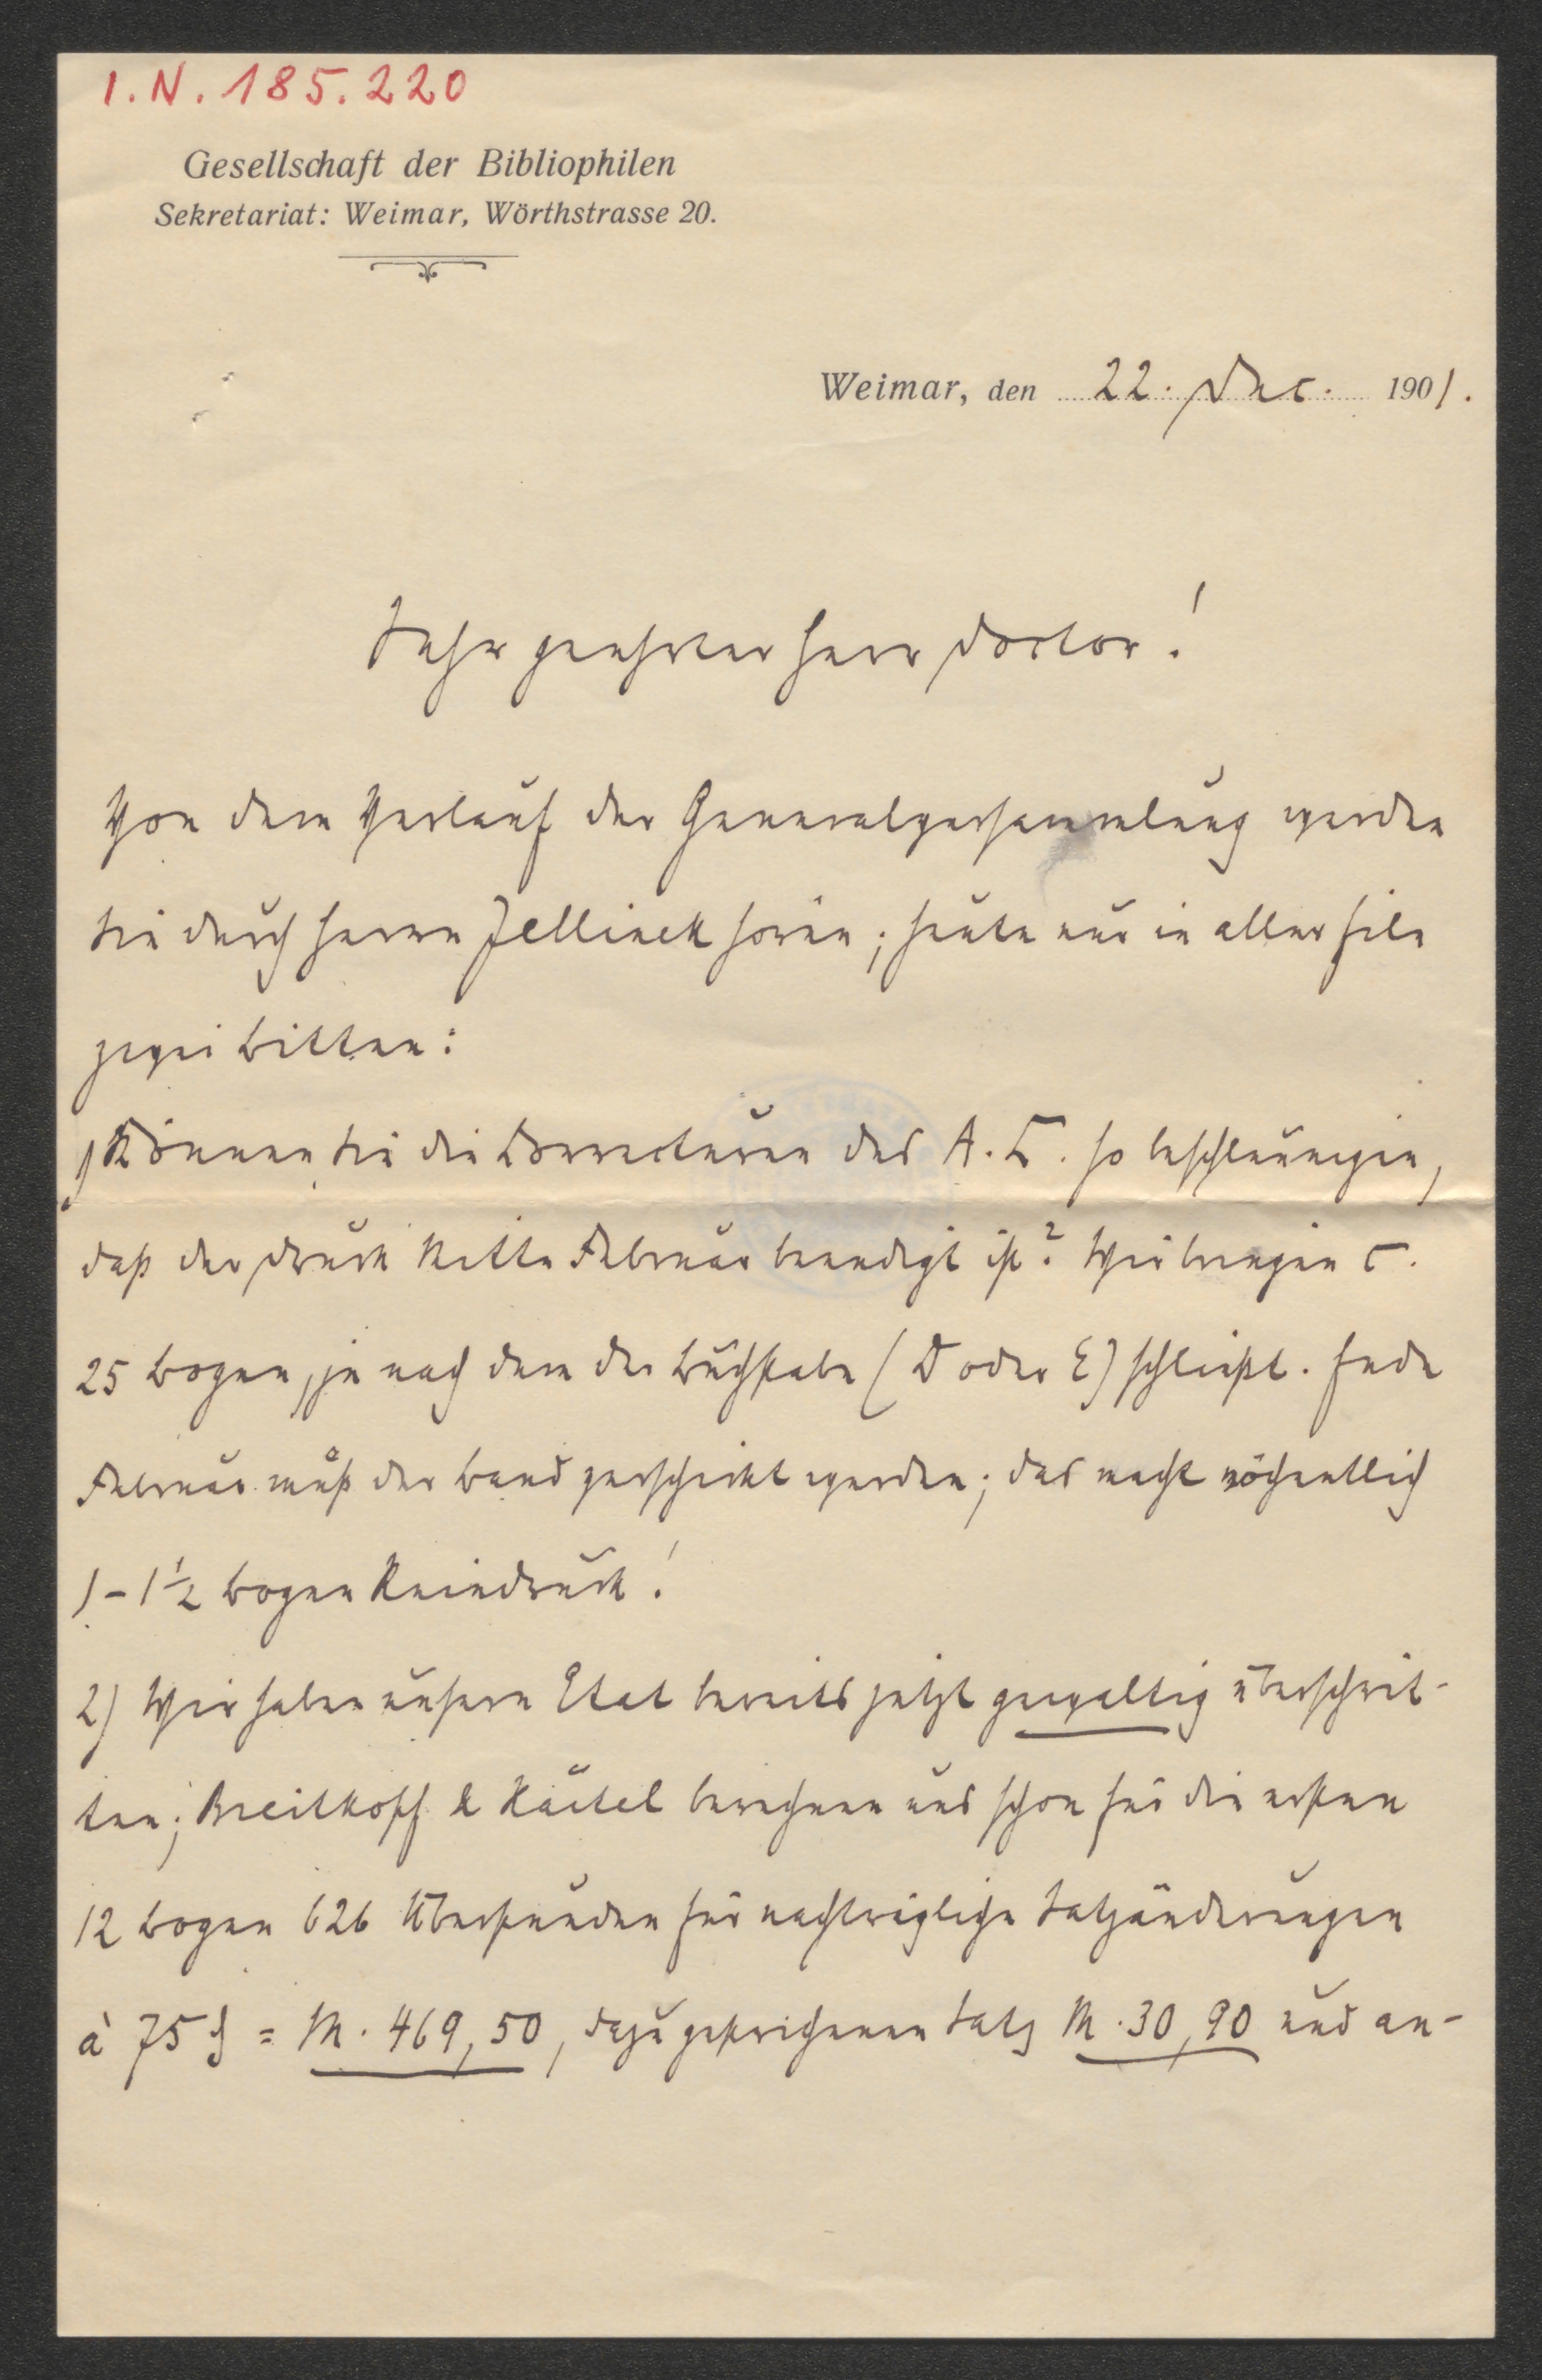 I.N. 185.220
Gesellschaft der Bibliophilen
Sekretariat: Weimar, Wörthstrasse 20.
Weimar, den 22. Dec. 1901.
Sehr geehrter Herr Doctor!
Von dem Verlauf der Generalversammlung werden
Sie durch Herrn Jellinek hören; heute nur in aller Eile
zwei Bitten:
1) Können Sie die Correcturen des A. L. so beschleunigen,
daß der Druck Mitte Februar beendigt ist? Wir bringen c.
25 Bogen, je nach dem der Buchstabe (D oder E) schließt. Ende
Februar muß der Band verschickt werden; das macht wöchentlich
1-1½ Bogen Reindruck!
2) Wir haben unsern Etat bereits jetzt gewaltig überschrit-
ten; Breitkopf & Härtel berechnen uns schon für die ersten
12 Bogen 626 Überstunden für nachträgliche Satzänderungen
à 75 ₰ = M. 469,50, dazu gestrichenen Satz M. 30,90 und an-